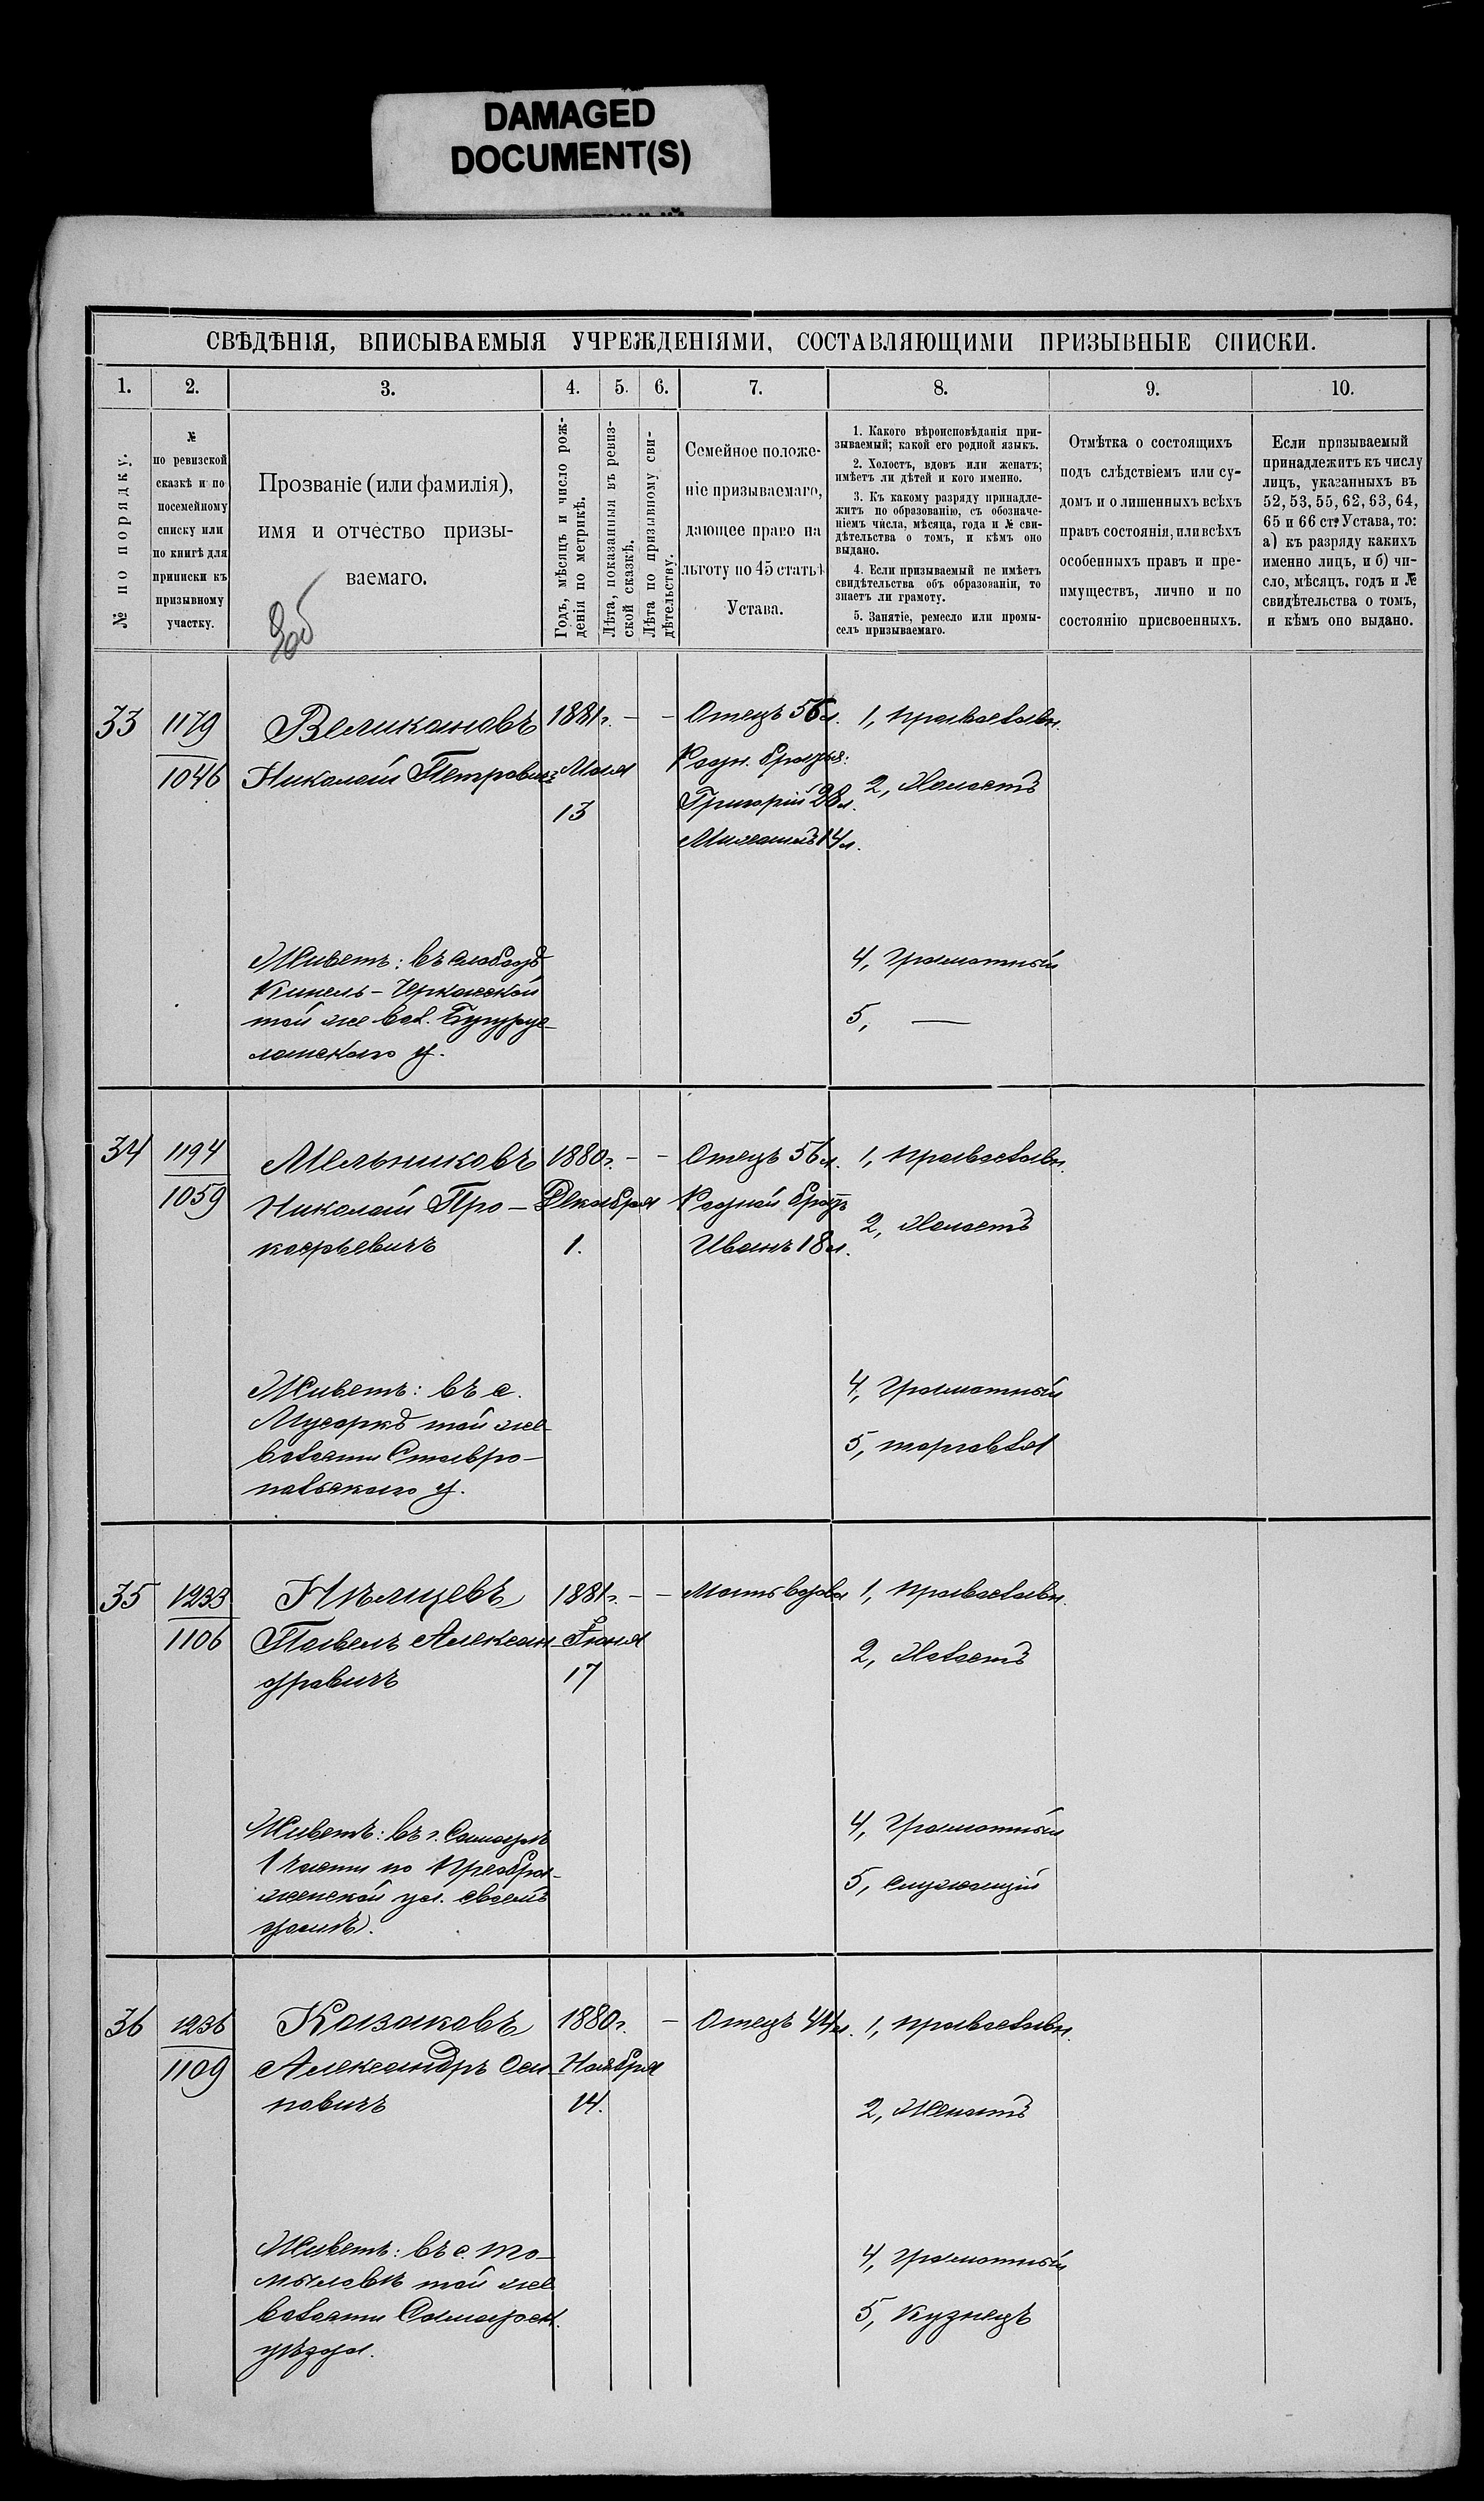 DAMAGED
DOCUMENT(S)
СВѢДѢНІЯ, ВПИСЫВАЕМЫЯ УЧРЕЖДЕНІЯМИ, СОСТАВЛЯЮЩИМИ ПРИЗЫВНЫЕ СПИСКИ.
1. 2. 3. 4. 5. 6. 7. 8. 9. 10.
№ по порядку.
№
по ревизской
сказкѣ и по
посемейному
списку или
по книгѣ для
приписки къ
призывному
участку.
Прозваніе (или фамилія),
имя и отчество призы-
ваемаго.
Годъ, мѣсяцъ и число рож-
денія по метрикѣ.
Лѣта, показанныя въ ревиз-
ской сказкѣ.
Лѣта по призывному сви-
дѣтельству.
Семейное положе-
ніе призываемаго,
дающее право на
льготу по 45 статьѣ
Устава.
1. Какого вѣроисповѣданія при-
зываемый; какой его родной языкъ.
2. Холостъ, вдовъ или женатъ;
имѣетъ ли дѣтей и кого именно.
3. Къ какому разряду принадле-
житъ по образованію, съ обозначе-
ніемъ числа, мѣсяца, года и № сви-
дѣтельства о томъ, и кѣмъ оно
выдано.
4. Если призываемый не имѣетъ
свидѣтельства объ образованіи, то
знаетъ ли грамоту.
5. Занятіе, ремесло или промы-
селъ призываемаго.
Отмѣтка о состоящихъ
подъ слѣдствіемъ или су-
домъ и о лишенныхъ всѣхъ
правъ состоянія, или всѣхъ
особенныхъ правъ и пре-
имуществъ, лично и по
состоянію присвоенныхъ.
Если призываемый
принадлежитъ къ числу
лицъ, указанныхъ въ
52, 53, 55, 62, 63, 64,
65 и 66 ст. Устава, то:
а) къ разряду какихъ
именно лицъ, и б) чи-
сло, мѣсяцъ, годъ и №
свидѣтельства о томъ,
и кѣмъ оно выдано.
33 1179 Великановъ 1881г. - - Отецъ 56 л. 1, православн.
1046 Николай Петровичъ Мая Родн. братья:
13 Григорій 28 л. 2, Холостъ
Михаилъ 14 л.
Живетъ: въ слободѣ 4, Грамотный
Кинель-Черкасской
той же вол. Бугурус- 5, —
ланскаго у.
34 1194 Мельниковъ 1880г. - - Отецъ 56 л. 1, православн.
1059 Николай Про- Декабря Родной братъ
кофьевичъ 1. Иванъ 18 л. 2, Холостъ
Живетъ: въ с. 4, Грамотный
Мусоркѣ той же
волости Ставро- 5, торговля
польскаго у.
35 1233 Нѣмцевъ 1881г. - - Мать вдова 1, православн.
1106 Павелъ Алексан- Іюня 2, Холостъ
дровичъ 17
Живетъ: въ г. Самарѣ 4, Грамотный
1 части по Преобра-
женской ул. своемъ 5, служащій
домѣ.
36 1236 Казаковъ 1880г. - Отецъ 44 л. 1, православн.
1109 Александръ Ноября
14. 2, Женатъ
Живетъ: въ с. То- 4, грамотный
мыловѣ той же
волости Самарск. 5, Кузнецъ
уѣзда.